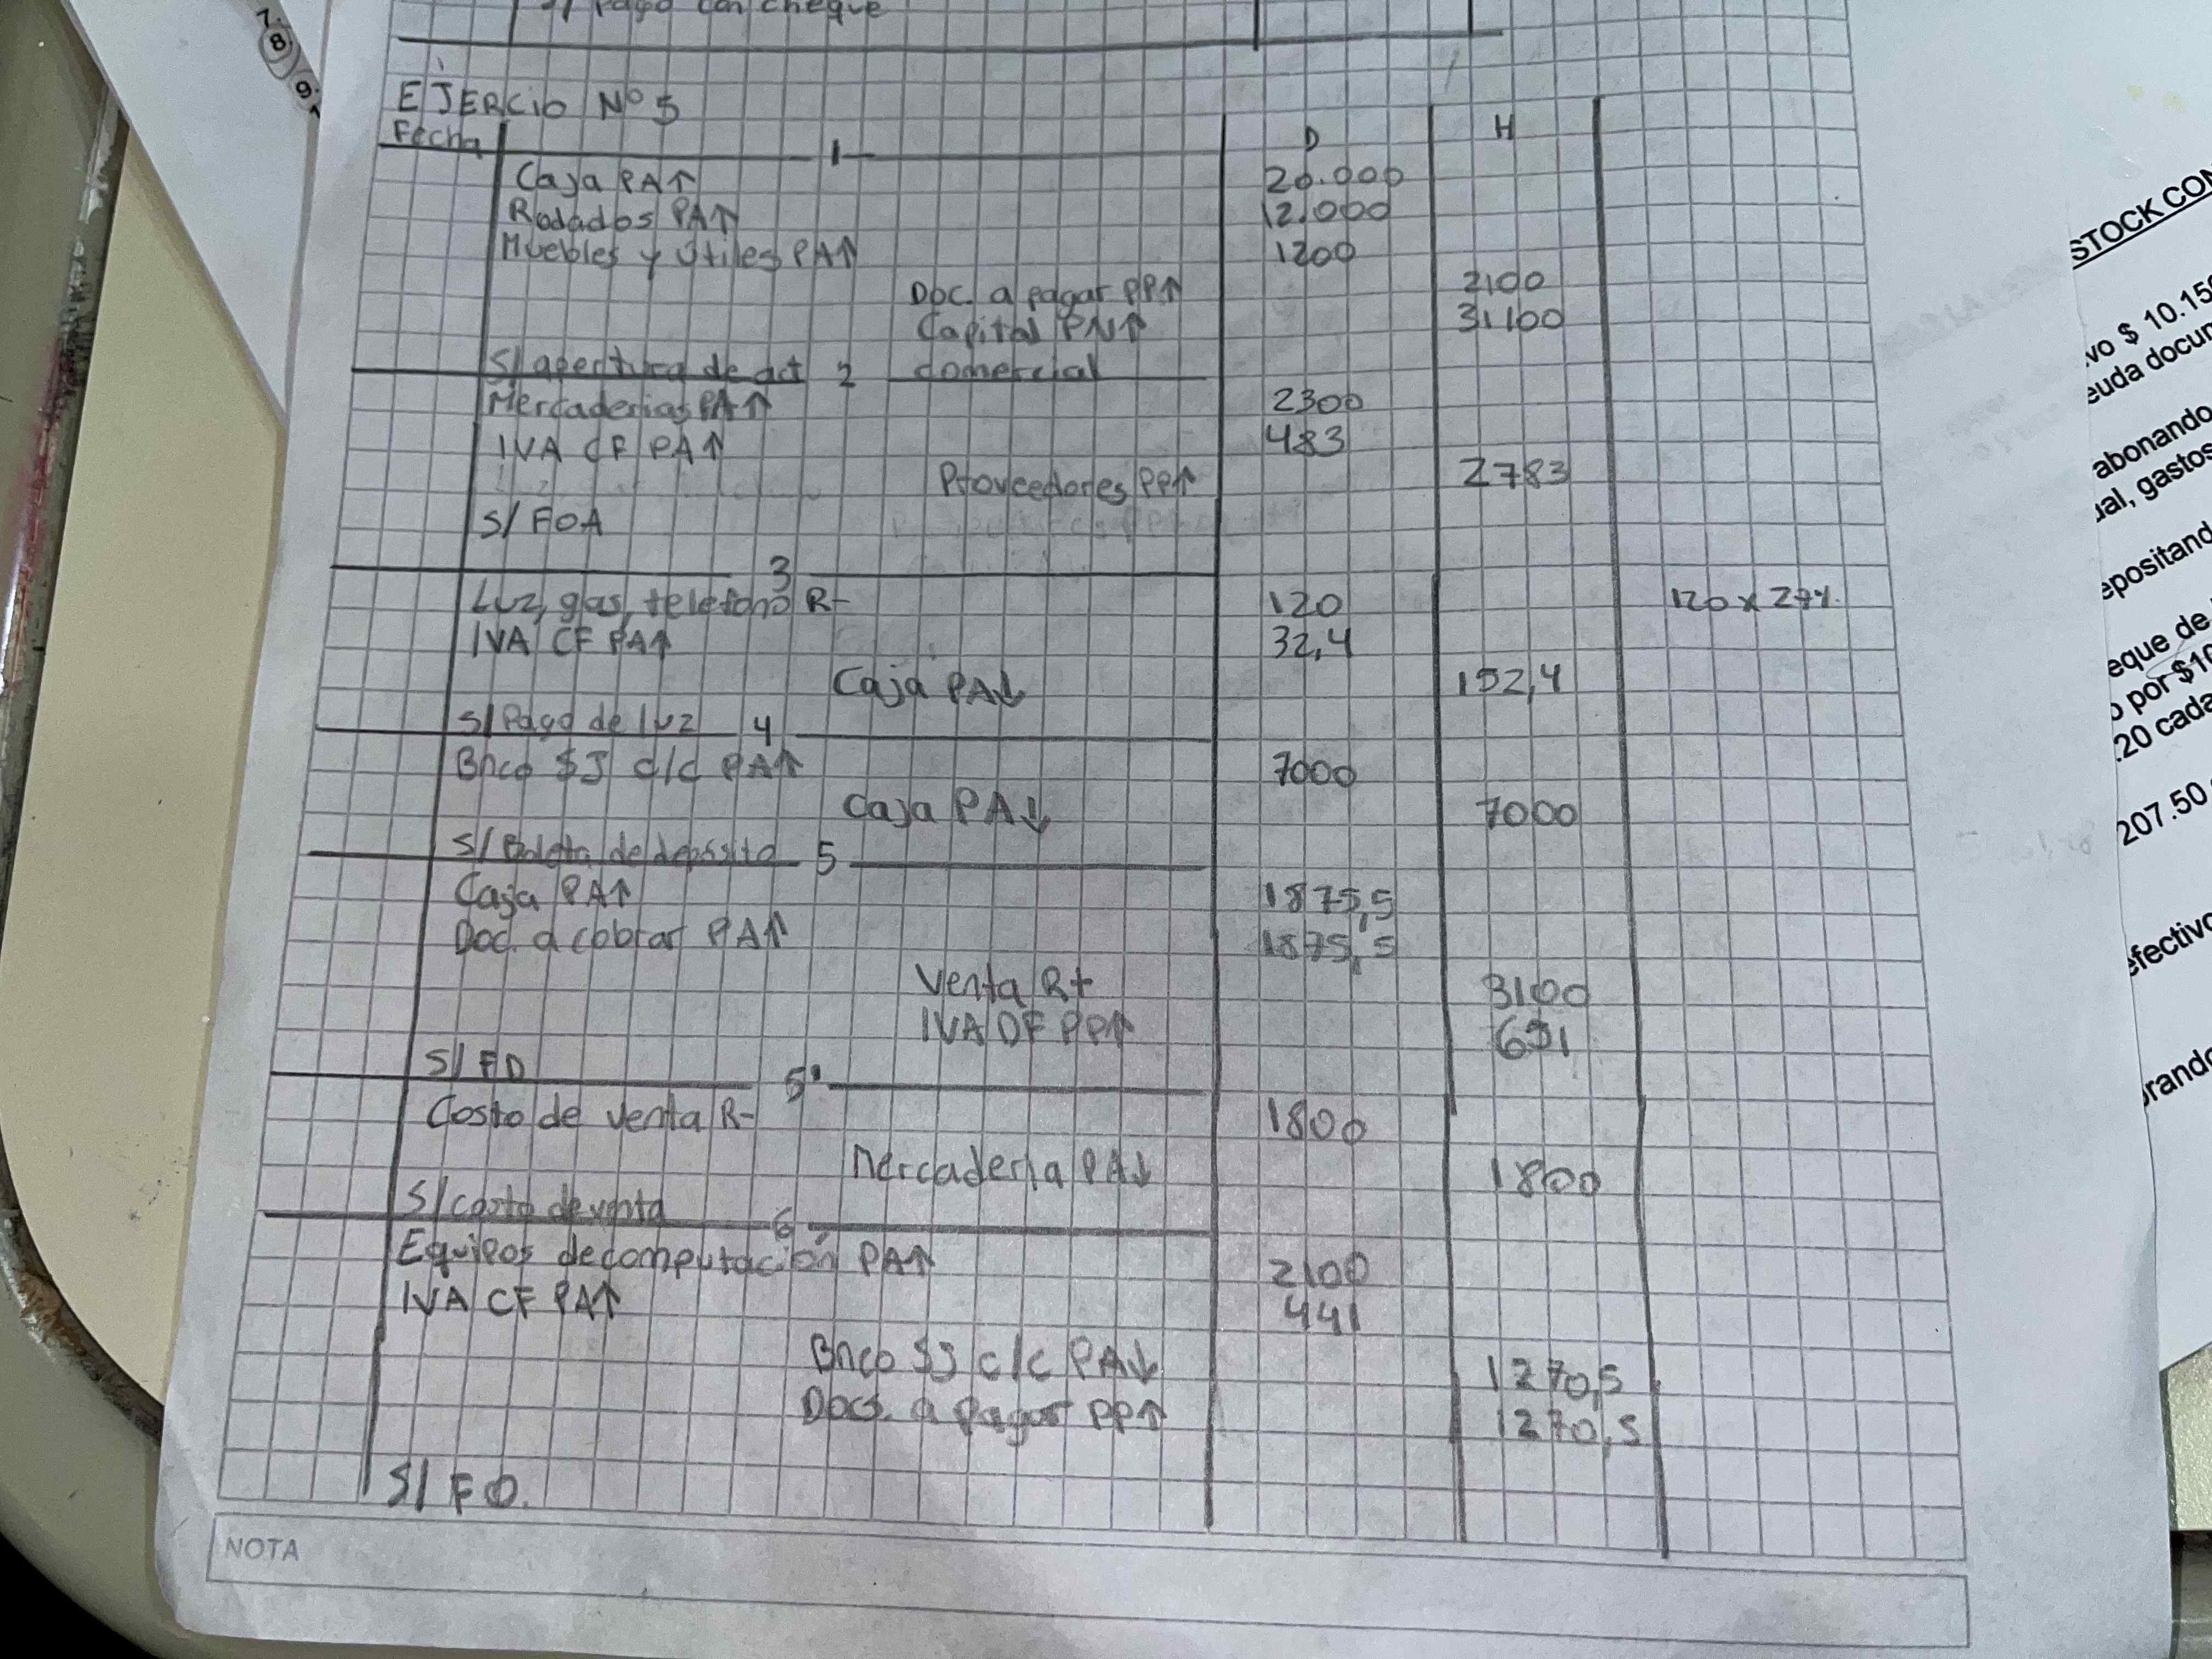 S/ Pago con cheque
7.
8
9.
EJERCIO Nº 5
Fecha 1 D H
Caja PA↑ 20.000
Rodados PA↑ 12.000
Muebles y utiles PA↑ 1200
Doc. a pagar PP↑ 2100
Capital PN↑ 31100
S/ apertura de act 2 comercial
Mercaderias PA↑ 2300
IVA CF PA↑ 483
Proveedores PP↑ 2783
S/ FOA
3
Luz, gas, telefono R- 120 120 x 27%
IVA CF PA↑ 32,4
Caja PA↓ 152,4
S/ Pago de luz 4
Bnco $J c/c PA↑ 7000
Caja PA↓ 7000
S/ Boleta de depósito 5
Caja PA↑ 1875,5
Doc. a cobrar PA↑ 1875,5
Venta R+ 3100
IVA DF PP↑ 651
S/ FD
5'
Costo de venta R- 1800
Mercaderia PA↓ 1800
S/ costo de venta 6
Equipos de computación PA↑ 2100
IVA CF PA↑ 441
Bnco $J c/c PA↓ 1270,5
Docs. a pagar PP↑ 1270,5
S/ FO.
NOTA
STOCK CON
vo $ 10.150
euda docum
abonando
ual, gastos
epositand
eque de
o por $10
20 cada
207.50
efectivo
brando